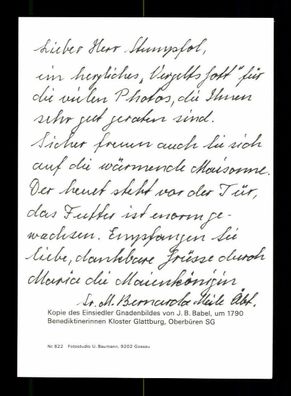 Lieber Herr Stumpfol,
ein herzliches „Vergelts Gott" für
die vielen Photos, die Ihnen
sehr gut geraten sind.
Sicher freuen auch Sie sich
auf die wärmende Maisonne.
Der heuet steht vor der Tür,
das Futter ist enorm ge-
wachsen. Empfangen Sie
liebe, dankbare Grüsse durch
Maria die Maienkönigin
Sr. M. Bernarda Meile Äbt.
Kopie des Einsiedler Gnadenbildes von J. B. Babel, um 1790
Benediktinerinnen Kloster Glattburg, Oberbüren SG
Nr. 822 Fotostudio U. Baumann, 9202 Gossau